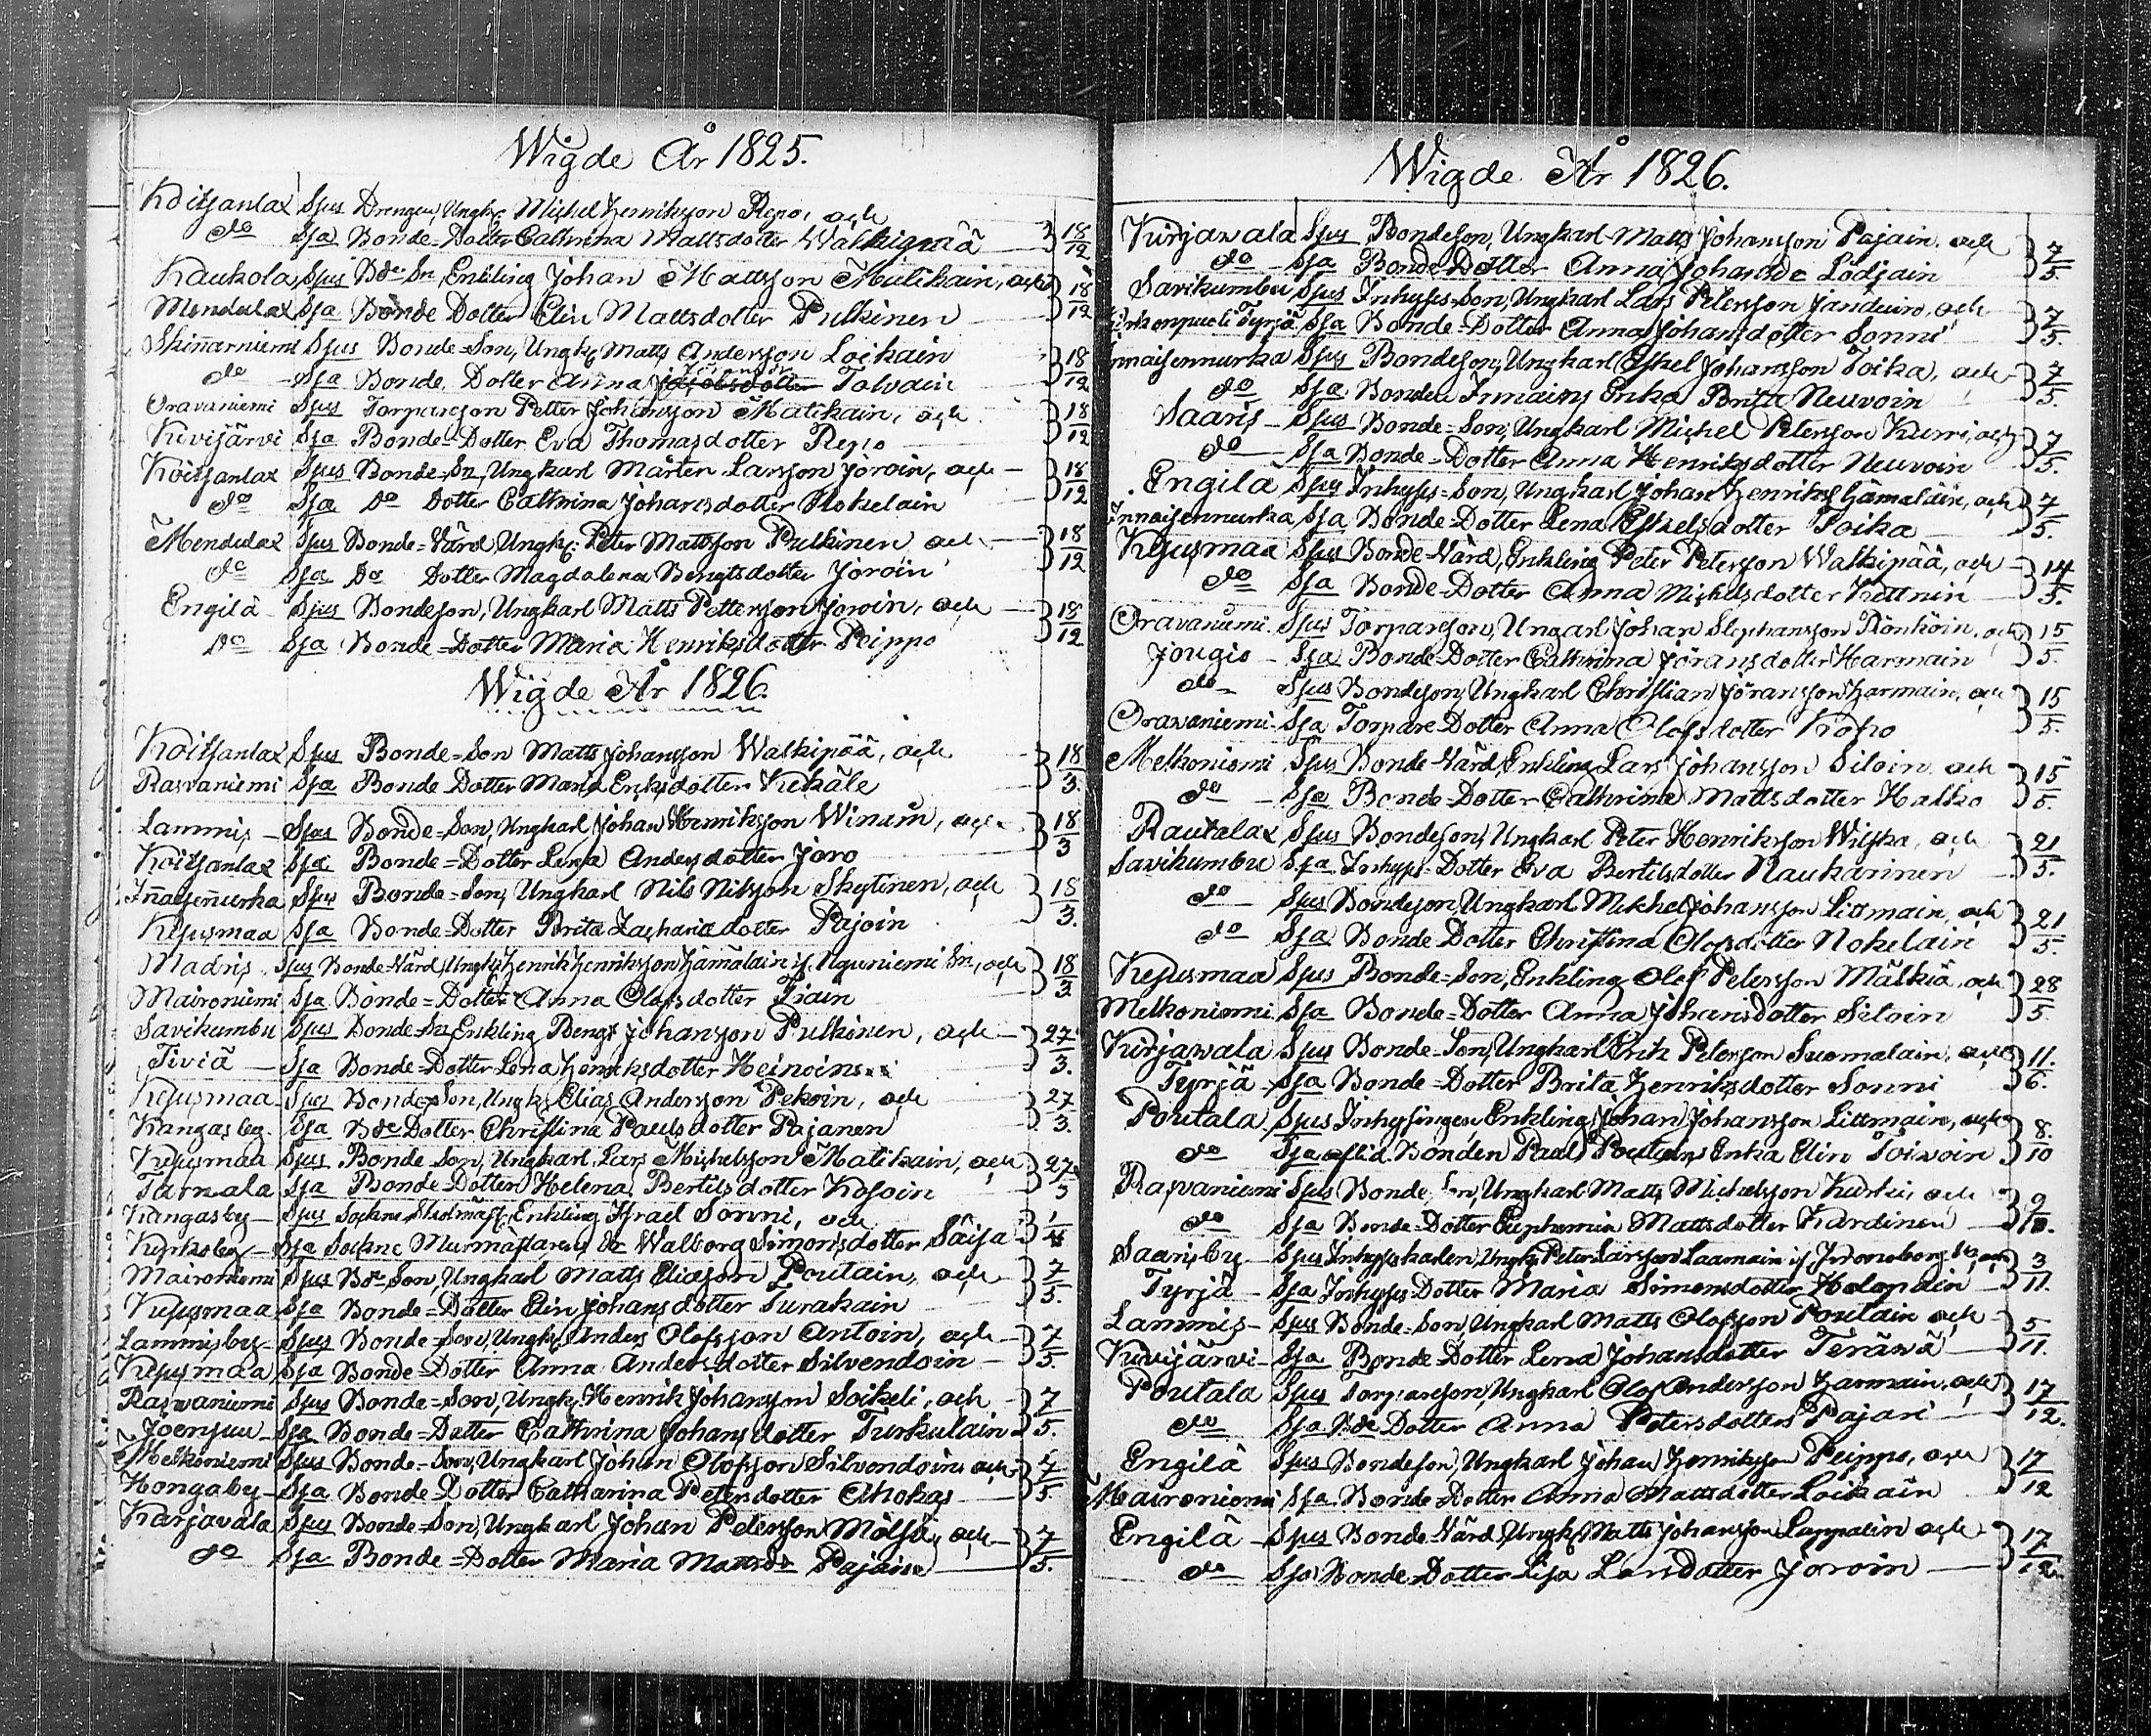 Wigde År 1825.
Koitsanlax Sjus Drengen, Ungk: Michel Henriksson Repo, och
do Sja Bonde-Dotter Cathrina Mattsdotter Walkipää 18/12
Kaukola Sjus Bde Sn, Enkling Johan Mattsson Matikain, och
Mendulax Sja Bonde Dotter Elin Mattsdotter Pulkinen 18/12
Skinnarniemi Sjus Bonde-Son, Ungk: Matts Andersson Loikain
do Sja Bonde Dotter Anna Jacobsdotter Tolvain 18/12
Oravaniemi Sjus Torparson Petter Johansson Matikain, och
Kuvijärvi Sja Bonde-Dotter Eva Thomasdotter Repo 18/12
Koitsanlax Sjus Bonde-Sn, Ungkarl Mårten Larsson Joroin, och
do Sja Do Dotter Cathrina Johansdotter Nokelain 18/12
Mendulax Sjus Bonde-Värd Ungk: Peter Mattsson Pulkinen och
do Sja Do Dotter Magdalena Bengtsdotter Joroin 18/12
Engilä Sjus Bondeson, Ungkarl Matts Pettersson Joroin, och
Do Sja Bonde-Dotter Maria Henriksdotter Peippo 18/12
Wigde År 1826.
Koitsanlax Sjus Bonde-Son Matts Johansson Walkipää, och
Rasvaniemi Sja Bonde Dotter Maria Eriksdotter Kekäle 18/3.
Lammis Sjus Bonde-Son, Ungkarl Johan Henriksson Winain, och
Koitsanlax Sja Bonde-Dotter Lena Andersdotter Joro 18/3
Innaisennurka Sjus Bonde-Son, Ungkarl Nils Nilsson Skytinen, och
Kesusmaa Sja Bonde-Dotter Brita Zachariadotter Pajoin 18/3.
Madris Sjus Bonde-Värd, Ungk: Henrik Henriksson Hämäläin if. Uguniemi Sn, och
Maironiemi Sja Bonde-Dotter Anna Olofsdotter Tiain 18/3
Savikumbu Sjus Bonde-Sn Enkling Bengt Johansson Pulkinen, och
Tiviä Sja Bonde-Dotter Lena Henriksdotter Heinoin 27/3.
Kesusmaa Sjus Bonde-Son, Ungk: Elias Andersson Pekoin, och
Kangasby Sja Bde Dotter Christina Paulsdotter Pajanen 27/3.
Kesusmaa Sjus Bonde-Son, Ungkarl Lars Michelsson Matikain, och
Tarnala Sja Bonde-Dotter Helena Bertilsdotter Kosoin 27/3
Kangasby Sjus Sockne Skolmäst: Enkling Israel Sonni, och
Kyrkoby Sja Sockne Murmästarens Dr Walborg Simonsdotter Säisa 1/4
Maironiemi Sjus Bde Son, Ungkarl Matts Eliasson Poutain, och
Kesusmaa Sja Bonde-Dotter Elin Johansdotter Surakain 7/5.
Lammisby Sjus Bonde-Son, Ungk: Anders Olofsson Antoin, och
Kesusmaa Sja Bonde-Dotter Anna Andersdotter Silvendoin 7/5.
Rasvaniemi Sjus Bonde-Son, Ungk: Henrik Johansson Soikeli, och
Joensuu Sja Bonde-Dotter Cathrina Johansdotter Turkulain 7/5.
Melkoniemi Sjus Bonde-Son, Ungkarl Johan Olofsson Silvendoin och
Hongaby Sja Bonde-Dotter Catharina Petersdotter Ahokas 7/5.
Karjavala Sjus Bonde-Son, Ungkarl Johan Petersson Mölsä, och
do Sja Bonde-Dotter Maria Mattsdr Pajain 7/5.
Wigde År 1826.
Kirjawala Sjus Bondeson, Ungkarl Matts Johansson Pajain och
do Sja Bonde-Dotter Anna Johansdr Lodjain 7/5.
Savikumbu Sjus Inhyses-Son, Ungkarl Lars Petersson Janduin, och
Tyrjä Sja Bonde-Dotter Anna Johansdotter Sonni 7/5.
Innaisennurka Sjus Bondeson, Ungkarl Eskel Johansson Toika, och
do Sja Bonden Inmains Enka Brita Neuvoin 7/5.
Saaris Sjus Bonde-Son, Ungkarl Michel Petersson Kurri, och
do Sja Bonde-Dotter Anna Henriksdotter Neuvoin 7/5.
Engilä Sjus Inhyses-Son, Ungkarl Johan Henrikss Hämäläin, och
Innaisennurka Sja Bonde-Dotter Lena Eskelsdotter Toika 7/5.
Kesusmaa Sjus Bonde-Värd, Enkling Peter Petersson Walkipää, och
do Sja Bonde-Dotter Anna Michelsdotter Kettuin 14/5.
Oravaniemi Sjus Torparson, Ungarl Johan Stephansson Rönköin, och
Jougio Sja Bonde-Dotter Cathrina Jöransdotter Harmain 15/5.
do Sjus Bondeson, Ungkarl Christian Jöransson Harmain, och
Oravaniemi Sja Torpare-Dotter Anna Olofsdotter Koho 15/5.
Melkoniemi Sjus Bonde-Värd, Enkling Lars Johansson Siloin och
do Sja Bonde-Dotter Cathrina Mattsdotter Hatko 15/5.
Rautalax Sjus Bondeson, Ungkarl Peter Henriksson Wilska, och
Savikumbu Sja Inhyses-Dotter Eva Bertilsdotter Naukarinen 21/5.
do Sjus Bondeson, Ungkarl Mikhel Johansson Littmain, och
do Sja Bonde-Dotter Christina Olofsdotter Nokelain 21/5.
Kesusmaa Sjus Bonde-Son, Enkling Olof Petersson Mälkiä, och
Melkoniemi Sja Bonde-Dotter Anna Johansdotter Siloin 28/5.
Kirjawala Sjus Bonde-Son, Ungkarl Erik Petersson Suomalain, och
Tyrjä Sja Bonde-Dotter Brita Henriksdotter Sonni 11./6.
Poutala Sjus Inhysingen, Enkling Johan Johansson Littmain, och
do Sja aflid. Bonden Paul Poutains Enka Elin Toiwoin 8./10
Rasvaniemi Sjus Bonde Son, Ungkarl Matts Michelsson Kurki, och
do Sja Bonde-Dotter Euphemia Mattsdotter Kardinen 9/10.
Saarisby Sjus Inhyseskarlen, Ungk: Peter Larsson Laamain if. Kronoborg Sn, och
Tyrjä Sja Inhyses Dotter Maria Simonsdotter Holopain 3/11.
Lammis Sjus Bonde-Son, Ungkarl Matts Olofsson Poutain och
Kuvijärvi Sja Bonde-Dotter Lena Johansdotter Teräwä 5/11.
Poutala Sjus Torparson, Ungkarl Olof Andersson Harmain, och
do Sja Bde Dotter Anna Petersdotter Pajari 17/12.
Engilä Sjus Bondeson, Ungkarl Johan Henriksson Peippo, och
Maironiemi Sja Bonde-Dotter Anna Mattsdotter Loikain 17/12
Engilä Sjus Bonde-Värd, Ungk: Matts Johansson Lappalin och
do Sja Bonde-Dotter Lisa Larsdotter Joroin 17/12